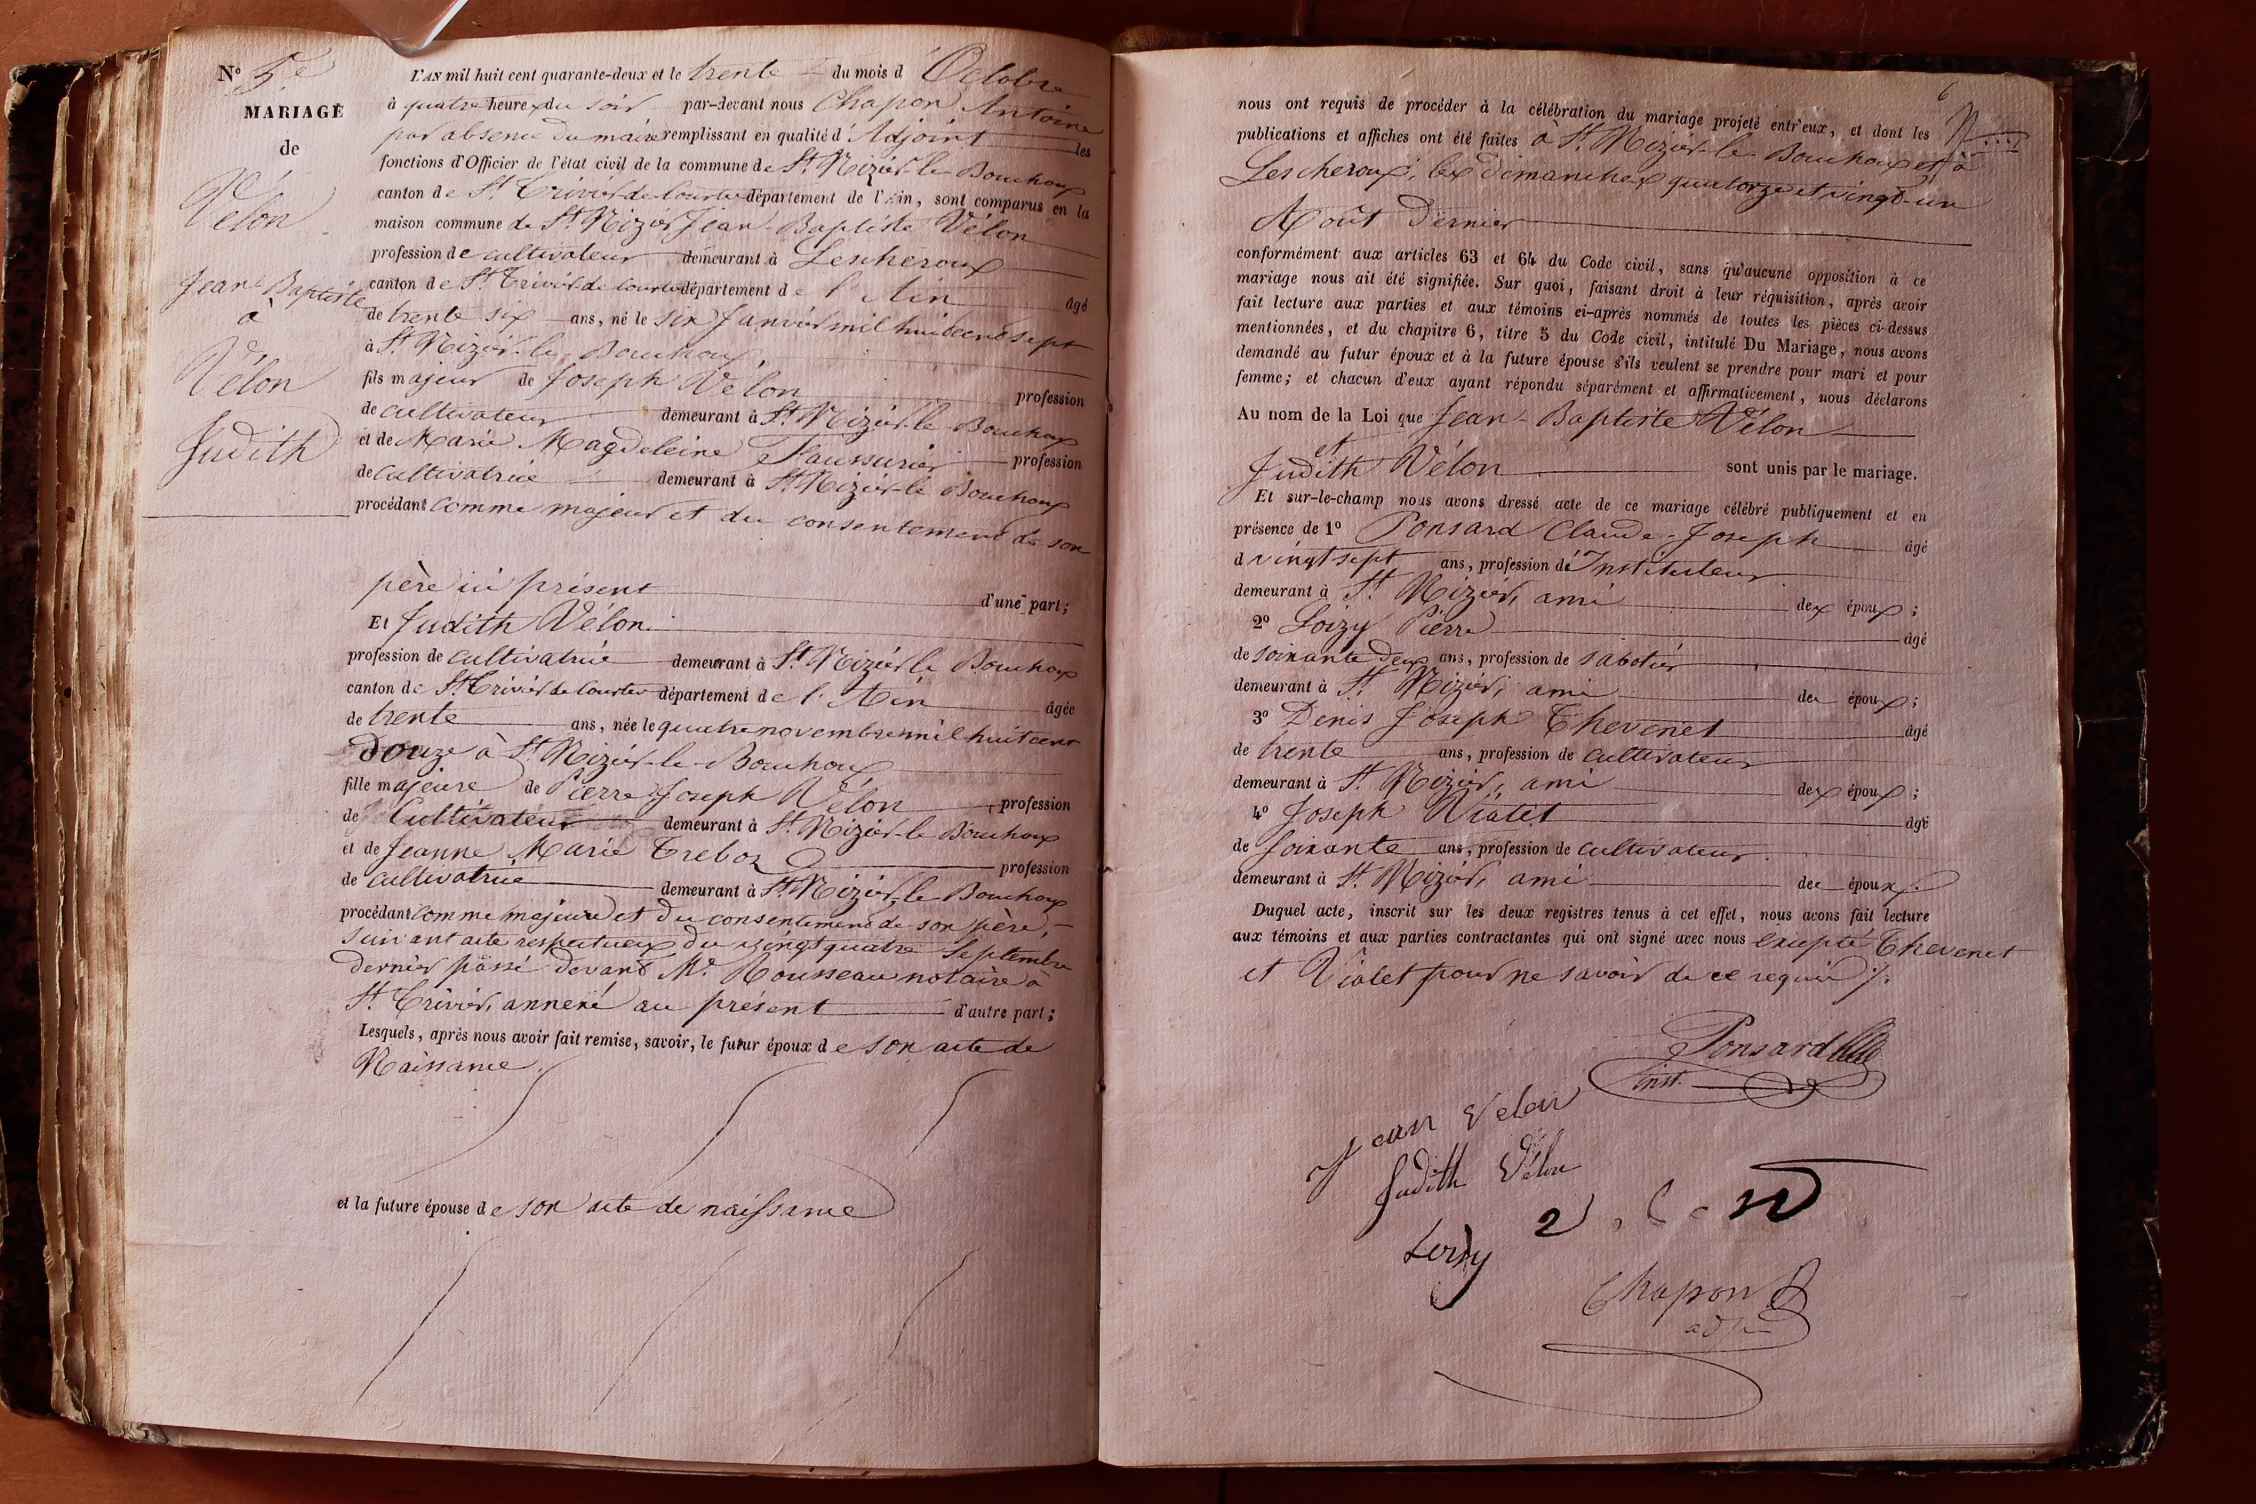 N° 5e
MARIAGE
de
Vélon
Jean Baptiste
à
Vélon
Judith
L'AN mil huit cent quarante-deux et le trente du mois d'Octobre
à quatre heures du soir par-devant nous Chapon Antoine
par absence du maire remplissant en qualité d'Adjoint les
fonctions d'Officier de l'état civil de la commune de St Nizier-le Bouchoux
canton de St Trivier de Courtes département de l'Ain, sont comparus en la
maison commune de St Nizier Jean-Baptiste Vélon
profession de cultivateur demeurant à Lescheroux
canton de St Trivier de Courtes département de l'Ain âgé
de trente six ans, né le six Janvier mil huit cent sept
à St Nizier-le Bouchoux,
fils majeur de Joseph Vélon profession
de cultivateur demeurant à St Nizier-le-Bouchoux
et de Marie Magdeleine profession
de cultivatrice demeurant à St Nizier-le Bouchoux
procédant comme majeur et du consentement de son
père ici présent d'une part;
Et Judith Vélon
profession de cultivatrice demeurant à St Nizier le Bouchoux
canton de St Trivier de Courtes département de l'Ain âgée
de trente ans, née le quatre novembre mil huit cent
douze à St Nizier-le-Bouchoux
fille majeure de Pierre Joseph Vélon profession
de Cultivateur demeurant à St Nizier-le Bouchoux
et de Jeanne Marie Treboz profession
de cultivatrice demeurant à St Nizier-le Bouchoux
procédant comme majeure et du consentement de son père,
suivant acte respectueux du vingt quatre Septembre
dernier passé devant Me Rousseau notaire à
St Trivier, annexé au présent d'autre part;
Lesquels, après nous avoir fait remise, savoir, le futur époux de son acte de
Naissance.
et la future épouse de son acte de naissance
6
nous ont requis de procéder à la célébration du mariage projeté entr'eux, et dont les
publications et affiches ont été faites à St Nizier-le Bouchoux et à
Lescheroux, les dimanches quatorze et vingt-un
Août dernier
conformément aux articles 63 et 64 du Code civil, sans qu'aucune opposition à ce
mariage nous ait été signifiée. Sur quoi, faisant droit à leur réquisition, après avoir
fait lecture aux parties et aux témoins ci-après nommés de toutes les pièces ci-dessus
mentionnées, et du chapitre 6, titre 5 du Code civil, intitulé Du Mariage, nous avons
demandé au futur époux et à la future épouse s'ils veulent se prendre pour mari et pour
femme; et chacun d'eux ayant répondu séparément et affirmativement, nous déclarons
Au nom de la Loi que Jean-Baptiste Vélon
et
Judith Vélon sont unis par le mariage.
Et sur-le-champ nous avons dressé acte de ce mariage célébré publiquement et en
présence de 1° Ponsard Claude-Joseph âgé
d vingt sept ans, profession d'Instituteur
demeurant à St Nizier, ami des époux;
2° Loizy Pierre âgé
de soixante deux ans, profession de sabotier
demeurant à St Nizier, ami des époux;
3° Denis Joseph Thevenet âgé
de trente ans, profession de cultivateur
demeurant à St Nizier, ami des époux;
4° Joseph Violet âgé
de soixante ans, profession de cultivateur
demeurant à St Nizier, ami des époux.
Duquel acte, inscrit sur les deux registres tenus à cet effet, nous avons fait lecture
aux témoins et aux parties contractantes qui ont signé avec nous excepté Thevenet
et Violet pour ne savoir de ce requis
Ponsard
inst.
Jean Velon
Judith Vélon
Loizy
Chapon
adj